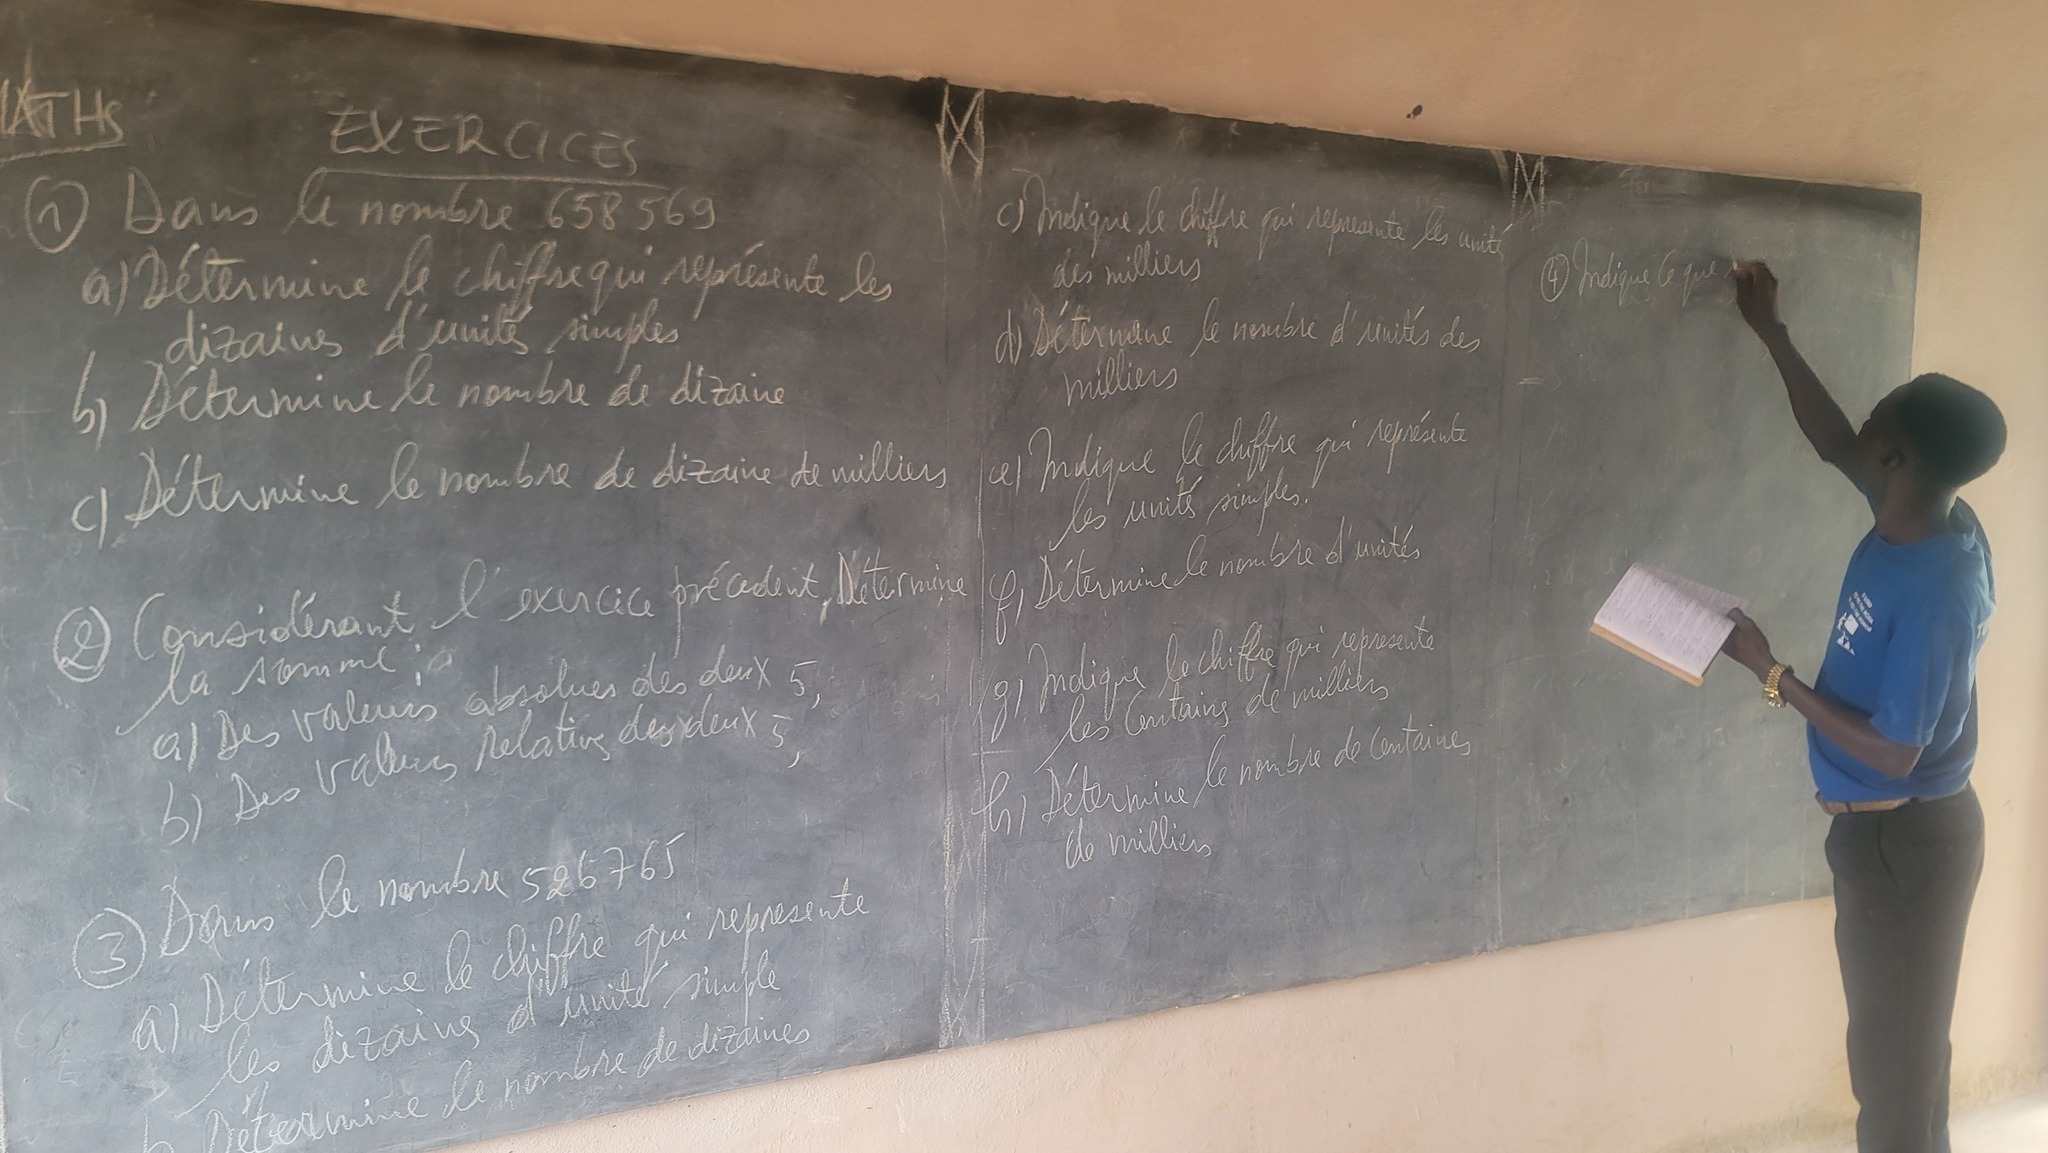 MATHS
EXERCICES
① Dans le nombre 658569
a) Détermine le chiffre qui représente les
dizaines d'unités simples
b) Détermine le nombre de dizaine
c) Détermine le nombre de dizaine de milliers
② Considérant l'exercice précedent, Détermine
la somme :
a) Des valeurs absolues des deux 5,
b) Des valeurs relatives des deux 5,
③ Dans le nombre 526765
a) Détermine le chiffre qui represente
les dizaines d'unité simple
b Détermine le nombre de dizaines
c) Indique le chiffre qui represente les unité
des milliers
d) Détermine le nombre d'unités des
milliers
e) Indique le chiffre qui représente
les unités simples.
f) Détermine le nombre d'unités
g) Indique le chiffre qui represente
les Centaines de milliers
h) Détermine le nombre de Centaines
de milliers
④ Indique Ce que